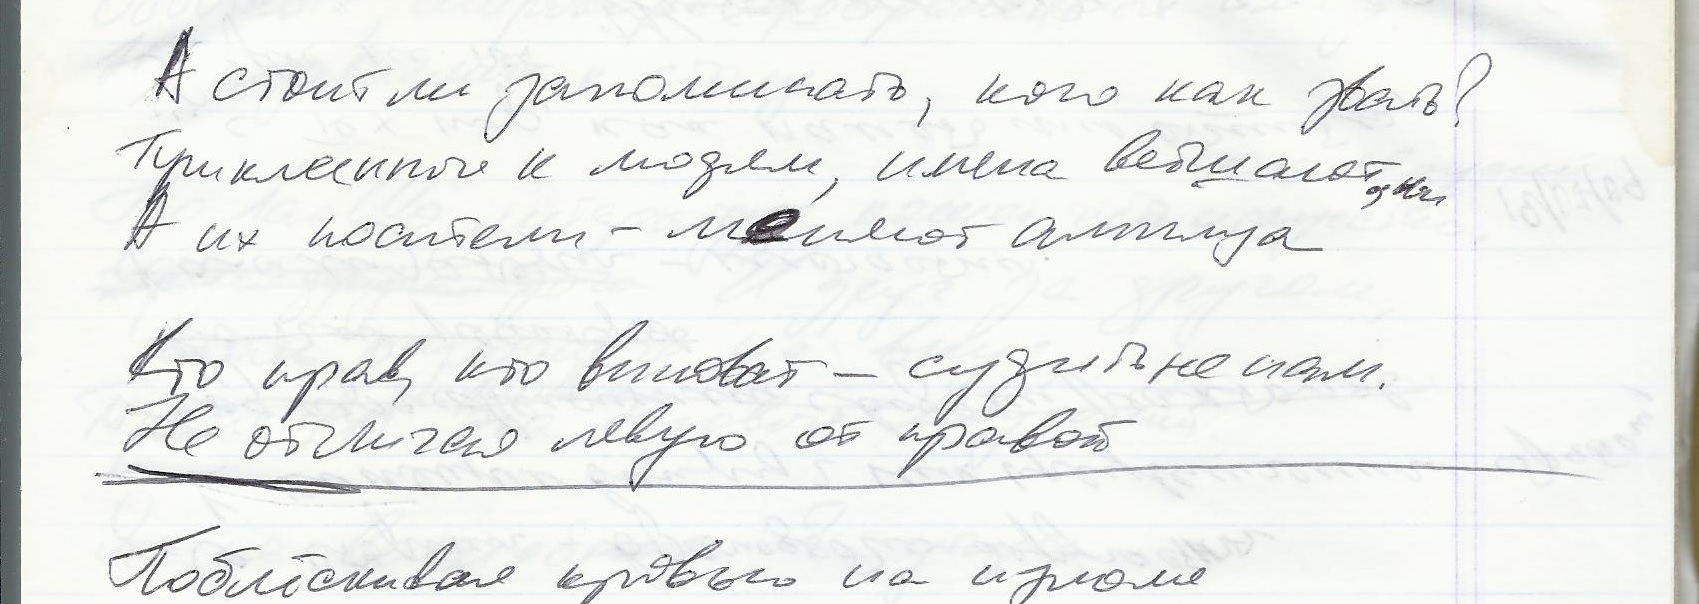 А стоит ли запоминать, кого как звать?
Приклеенные к людям, имена ветшают одни
А их носители - меняют
Кто прав, кто виноват – судить не нам.
Не отличаю левую от правой
Поблёскивая кровью на изломе